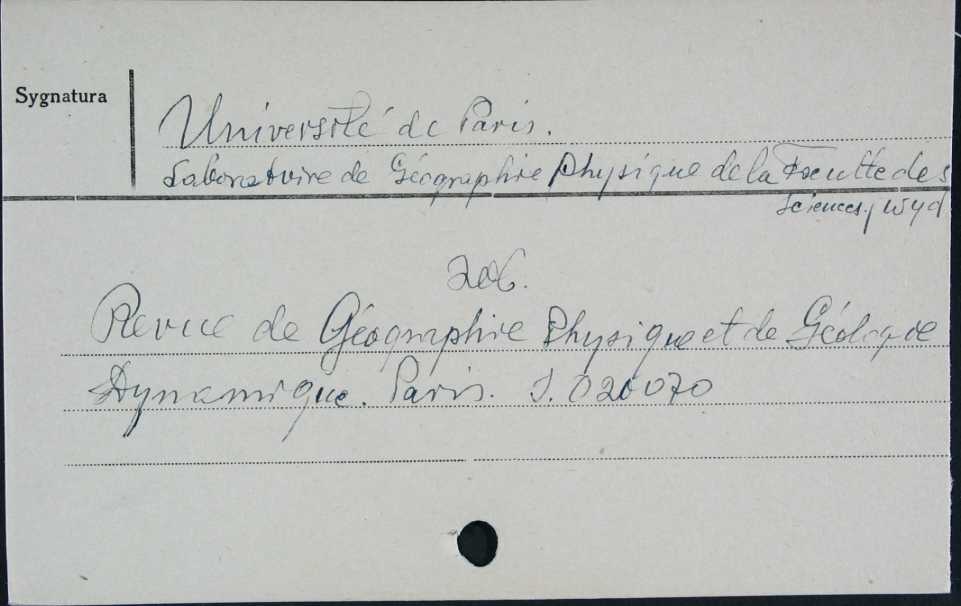 Sygnatura
Université de Paris.
Laboratoire de Géographie Physique de la Faculte des
Sciences, wyd.
zob.
Revue de Géographie Physique et de Géologie
Dynamique. Paris. S. 020070